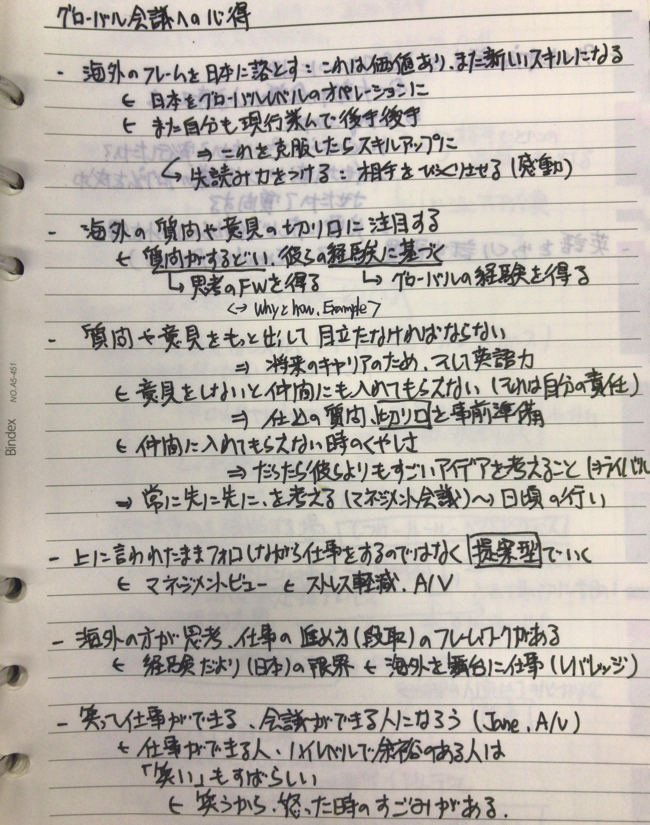 グローバル会議への心得
- 海外のフレームを日本に落とす：これは価値あり、また新しいスキルになる
← 日本をグローバルレベルのオペレーションに
← また自分も現行業ムで後手後手
⇒ これを克服したらスキルアップに
↳ 先読み力をつける：相手をびっくりさせる(感動)
- 海外の質問や意見の切り口に注目する
← 質問がするどい、彼らの経験に基づく
↳ 思考のFWを得る ↳ グローバルの経験を得る
<-> Why と how, Example>
- 質問や意見をもっと出して目立たなければならない
⇒ 将来のキャリアのため、そして英語力
← 意見をしないと仲間にも入れてもらえない (それは自分の責任)
⇒ 仕込の質問、切り口を事前準備
← 仲間に入れてもらえない時のくやしさ
⇒ だったら彼らよりもすごいアイデアを考えること (ライバル
⇒ 常に先に先に、を考える (マネジメント会議) 〜 日頃の行い
- 上に言われたままフォローしながら仕事をするのではなく 提案型 でいく
← マネジメントビュー ← ストレス軽減、A/V
- 海外の方が思考、仕事の進め方(段取)のフレームワークがある
← 経験だより(日本)の限界 ← 海外を舞台に仕事(レバレッジ)
- 笑って仕事ができる、会議ができる人になろう (Jane, A/V)
← 仕事ができる人、ハイレベルで余裕のある人は
「笑い」もすばらしい
← 笑うから、怒った時のすごみがある.
Bindex NO.A5-451